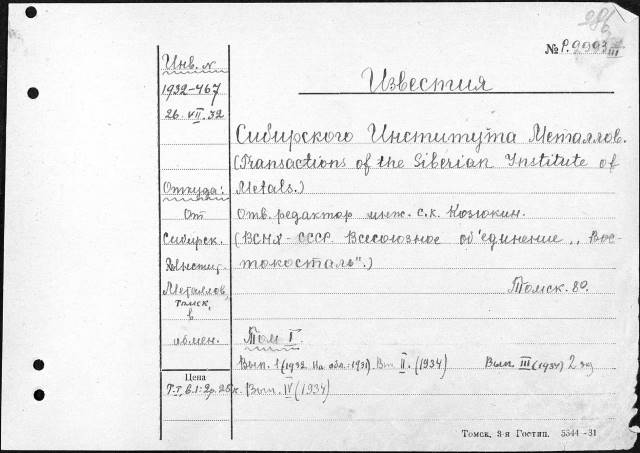 № Р.9993/III
Инв. №
1932-467
26.VII.32
Известия
Сибирского Института Металлов.
(Transactions of the Siberian Institute of
Metals.)
Откуда:
От
Сибирск.
Института
Металлов,
Томск,
в
обмен.
Отв. редактор инж. С.К. Козюкин.
(ВСНХ - СССР. Всесоюзное об'единение ,,Вос-
токосталь".)
Томск. 8º.
Том I.
Вып. 1 (1932. На обл.: 1931). Вып. II. (1934) Вып. III (1934) 2 экз
Вып. IV (1934)
Цена
Т.I, в.1: 2 р. 25 к.
Томск, 3-я Гостип. 5544-31